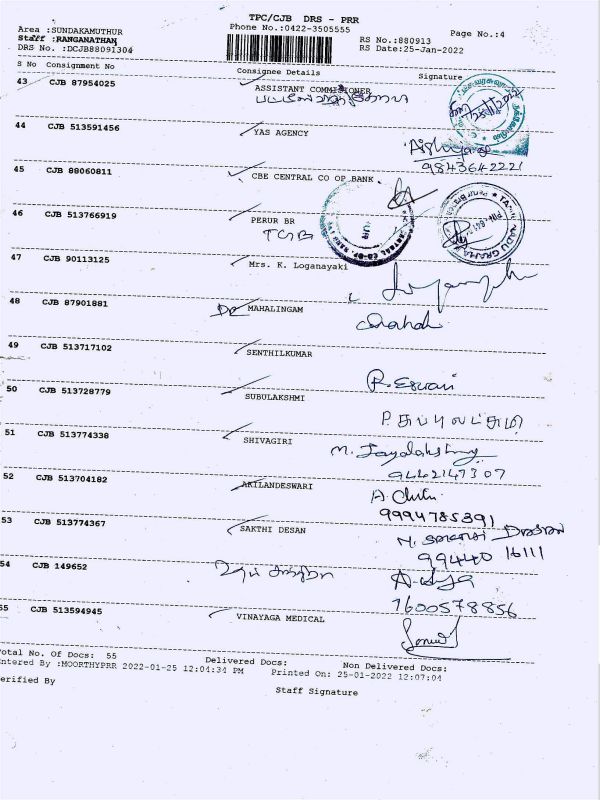 TPC/CJB DRS - PRR
Area :SUNDAKAMUTHUR
Phone No.:0422-3505555
Page No.:4
Staff :RANGANATHAN
RS No.:880913
DRS No. :DCJB88091304
RS Date:25-Jan-2022
S No Consignment No Consignee Details Signature
43 CJB 87954025 ASSISTANT COMMISIONER
44 CJB 513591456 YAS AGENCY
9843642221
45 CJB 88060811 CBE CENTRAL CO OP BANK
46 CJB 513766919 PERUR BR
47 CJB 90113125 Mrs. K. Loganayaki
48 CJB 87901881 MAHALINGAM
49 CJB 513717102 SENTHILKUMAR
R. Eswari
50 CJB 513728779 SUBULAKSHMI
P. சுப்புலட்சுமி
51 CJB 513774338 SHIVAGIRI
M. Jayalakshmy
9442147307
52 CJB 513704182 AKILANDESWARI
9994785391
53 CJB 513774367 SAKTHI DESAN
99440 16111
54 CJB 149652
7600578856
55 CJB 513594945 VINAYAGA MEDICAL
otal No. Of Docs: 55 Delivered Docs: Non Delivered Docs:
ntered By :MOORTHYPRR 2022-01-25 12:04:34 PM Printed On: 25-01-2022 12:07:04
erified By
Staff Signature